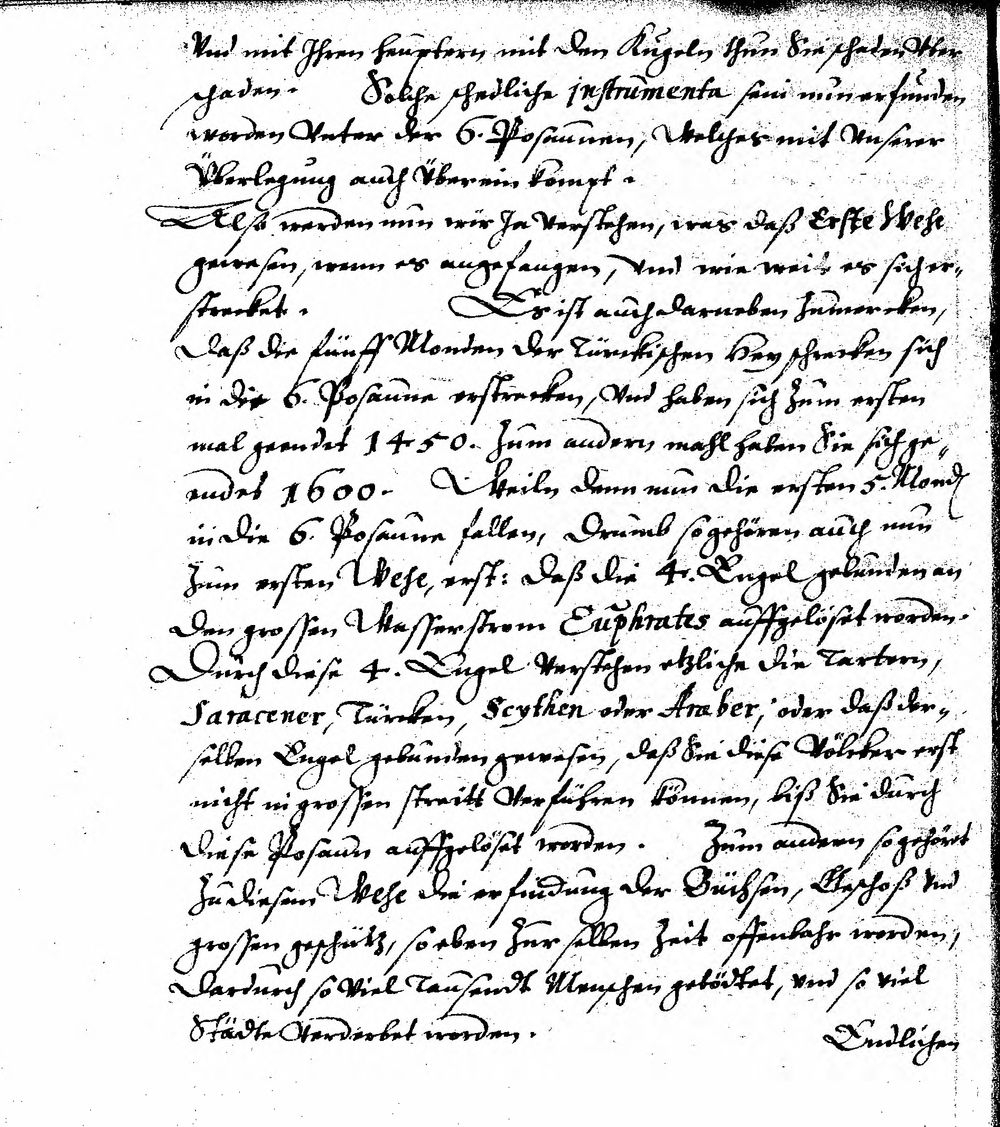 Vnd mit Ihren heuptern mit den Kugeln thun Sie schaden Vber
schaden. Solche schedliche instrumenta sein nun erfunden
worden Vnter der 6. Posaunen, Welches mit Vnserer
Überlegung auch Überein kompt.
Also werden nun wir Ja verstehen, was daß Erste Wehe
gewesen, wenn es angefangen, Vnd wie weit es sich er-
strecket. Es ist auch darneben Zumercken,
Daß die fünff Monden der Türckischen Heyschrecken sich
in die 6. Posaune erstrecken, Vnd haben sich Zum ersten
mal geendet 1450. Zum andern mahl haben Sie sich ge-
endet 1600. Weiln denn nun die ersten 5. Mond
in die 6. Posaune fallen, Drumb so gehören auch nun
Zum ersten Wehe, erst: Daß die 4. Engel gebunden an
den grossen Wasserstrom Euphrates auffgelöset worden.
Durch diese 4. Engel Verstehen etzliche die Tartern,
Saracener, Türcken, Scythen oder Araber, oder daß der-
selben Engel gebunden gewesen, daß Sie diese Völcker erst
nicht in grossen streitt Verführen können, biß Sie durch
diese Posaun auffgelöset worden. Zum andern so gehört
Zu diesem Wehe die erfindung der Büchsen, Geschoß vnd
grossen geschütz, so eben Zur selben Zeit offenbahr worden,
Dardurch so Viel Tausendt Menschen getödtet, vnd so viel
Städte Verderbet worden.
Endlichen